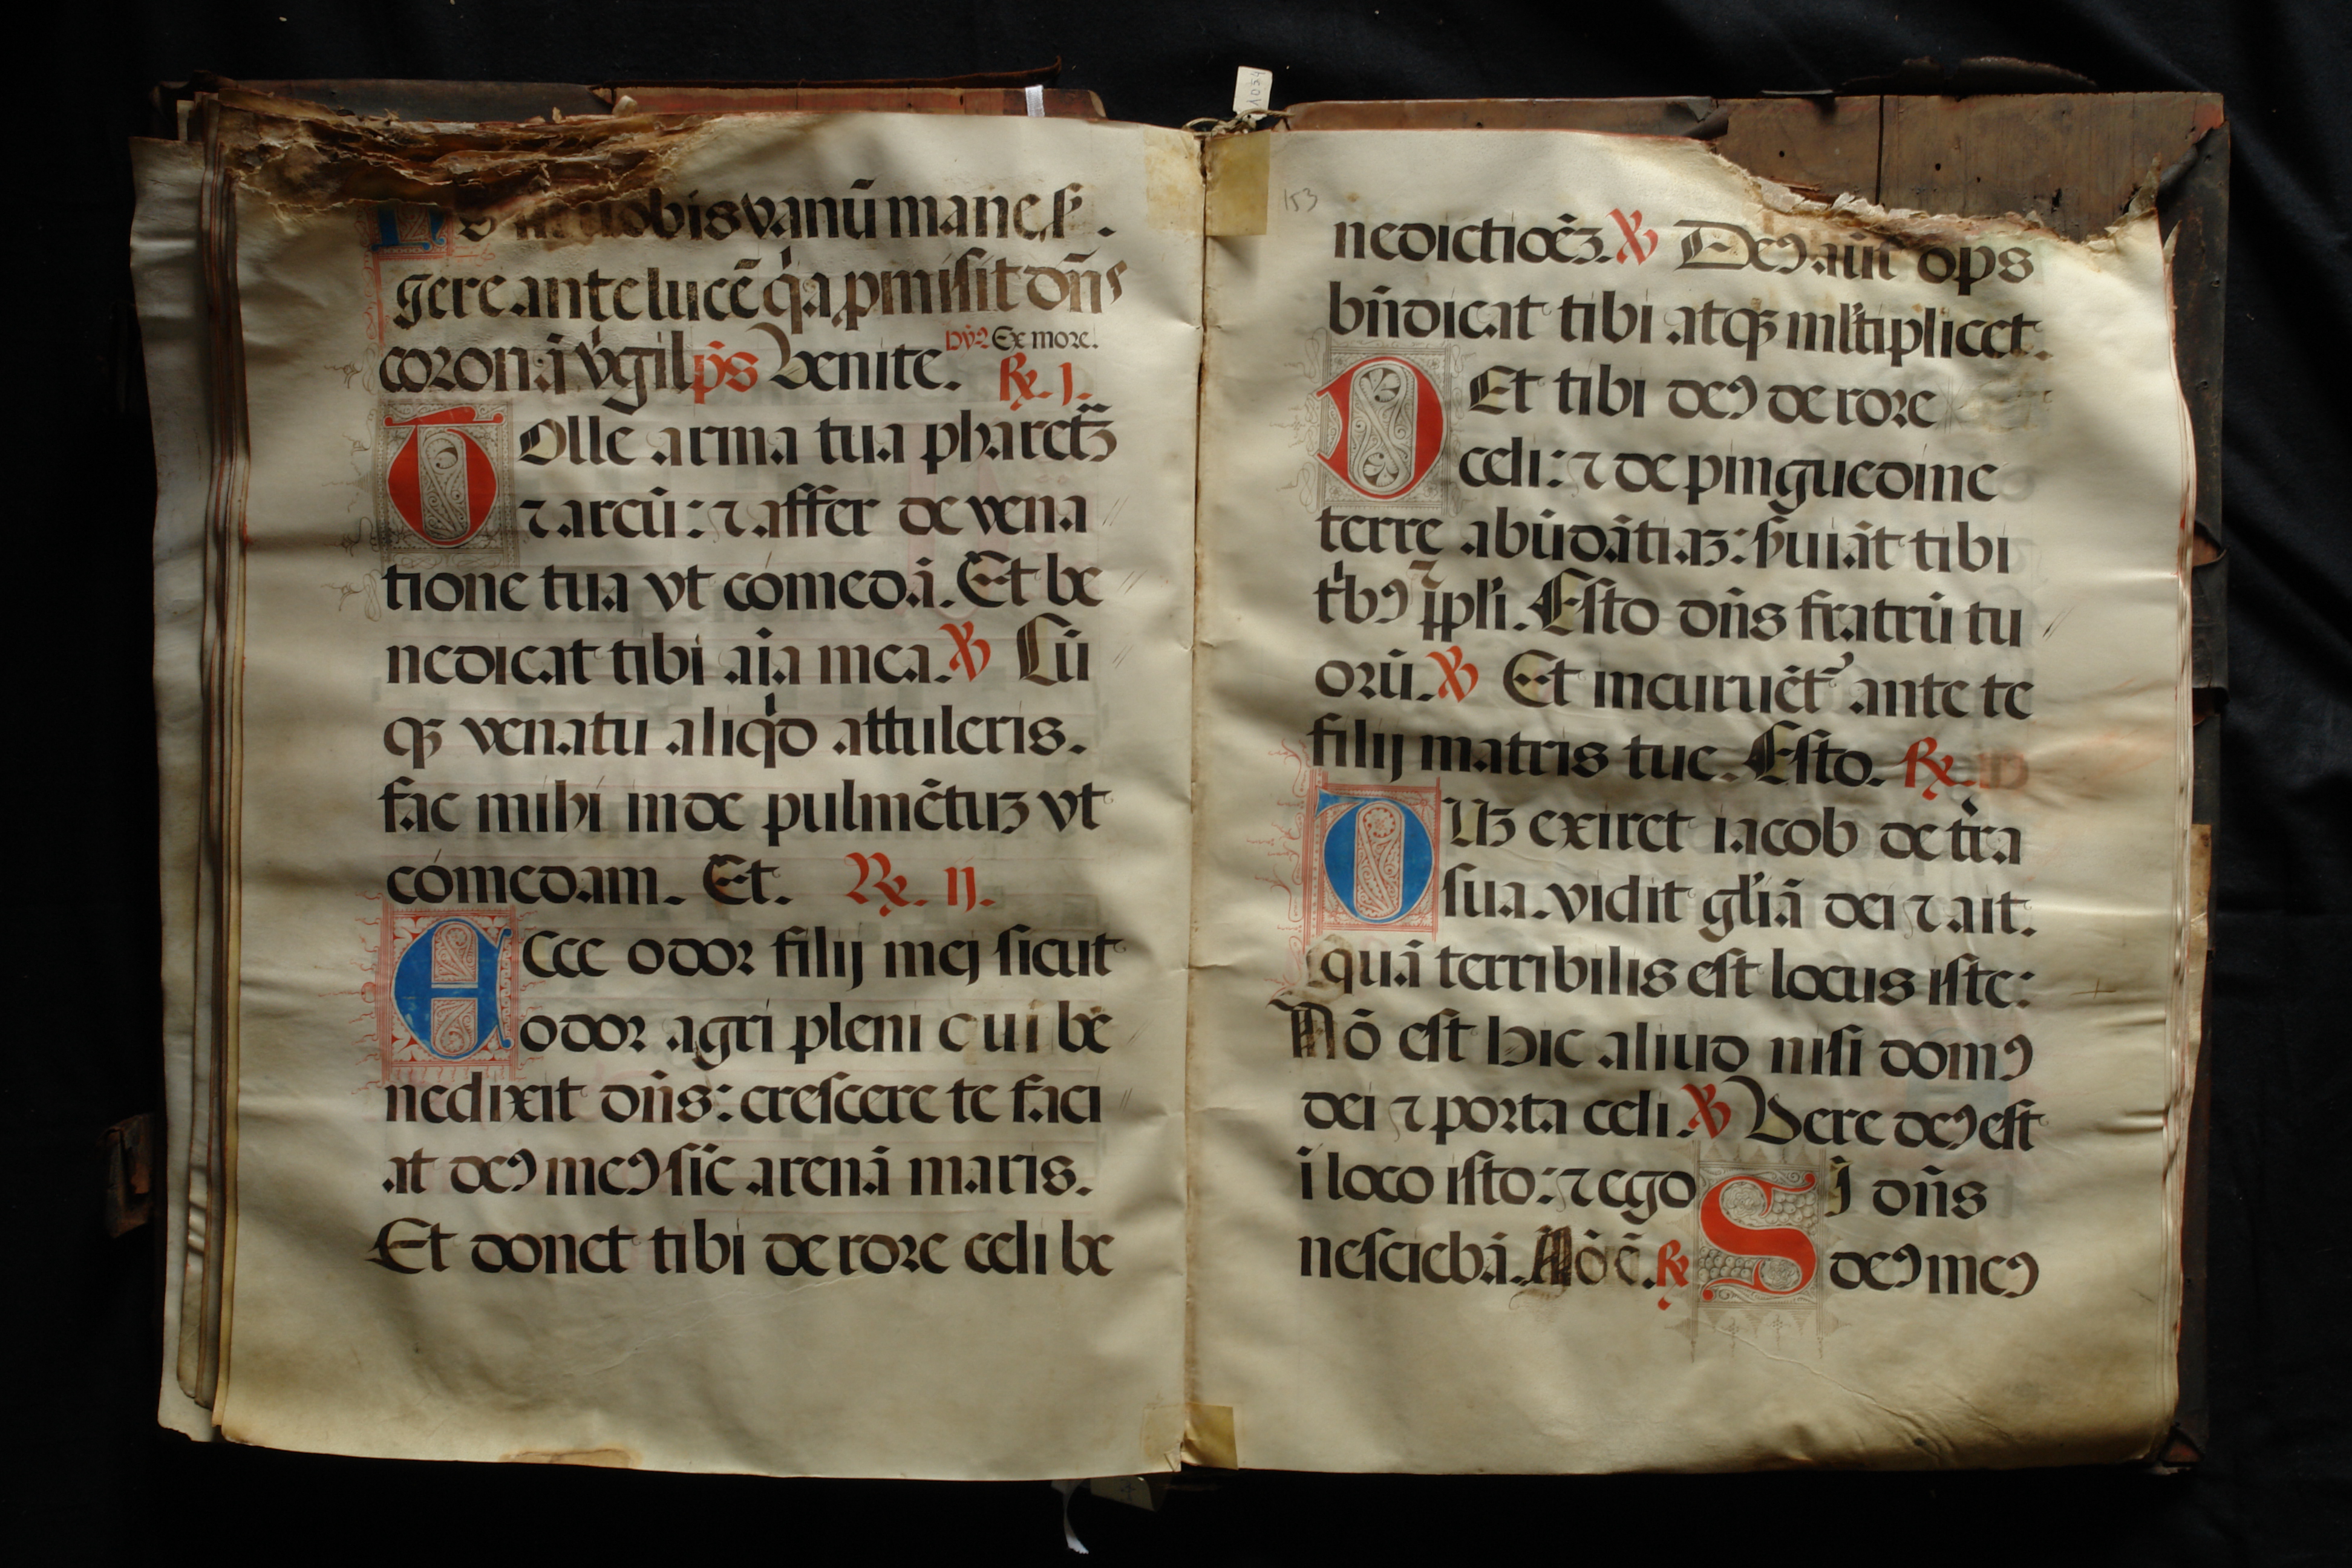 uobis vanū mane sʳ.
gere ante lucē q̇a ꝓmisit dn̄s
coronā vġgilpꝰ̄s Venite. Dy̾z Ex more. ℞. j.
TOlle arma tua pharetꝝ̄
⁊ arcū: ⁊ affer de vena
tione tua vt cómedā. Et be
nedicat tibi aīa mea. ℣ Cū
qꝫ venatu aliqͥd attuleris.
fac mihi inde pulmētuꝫ vt
cómedam. Et. ℞. ij.
ECce odoꝛ filij mej sicut
odoꝛ agri pleni cui be
nedixit dn̄s: crescere te faci
at deꝰ meꝰ sic̄ arenā maris.
Et donet tibi de roꝛe celi be
1034
153
nedictiōeꝫ. ℣ Deꝰ aūt ops
bn̄dicat tibi atqꝫ ml̄tiplicet.
DEt tibi deꝰ de roꝛe
celi: ⁊ de pinguedine
terre abūdātiaꝫ: ẜuiāt tibi
tͥbꝰ ⁊ ppl̄i. Esto dn̄s fratrū tu
oꝛū. ℣ Et incuruēt᷑ ante te
filij matris tue. Esto. ℞. iii
DUꝫ exiret iacob de tr̄a
sua. vidit gl̄iā dei ⁊ ait.
quā terribilis est locus iste:
Nō est hic aliud nisi domꝰ
dei ⁊ poꝛta celi. ℣ Vere deꝰ est
ī loco isto: ⁊ ego
nesciebā. Nō ē. ℞
Sj dn̄s
deꝰ meꝰ